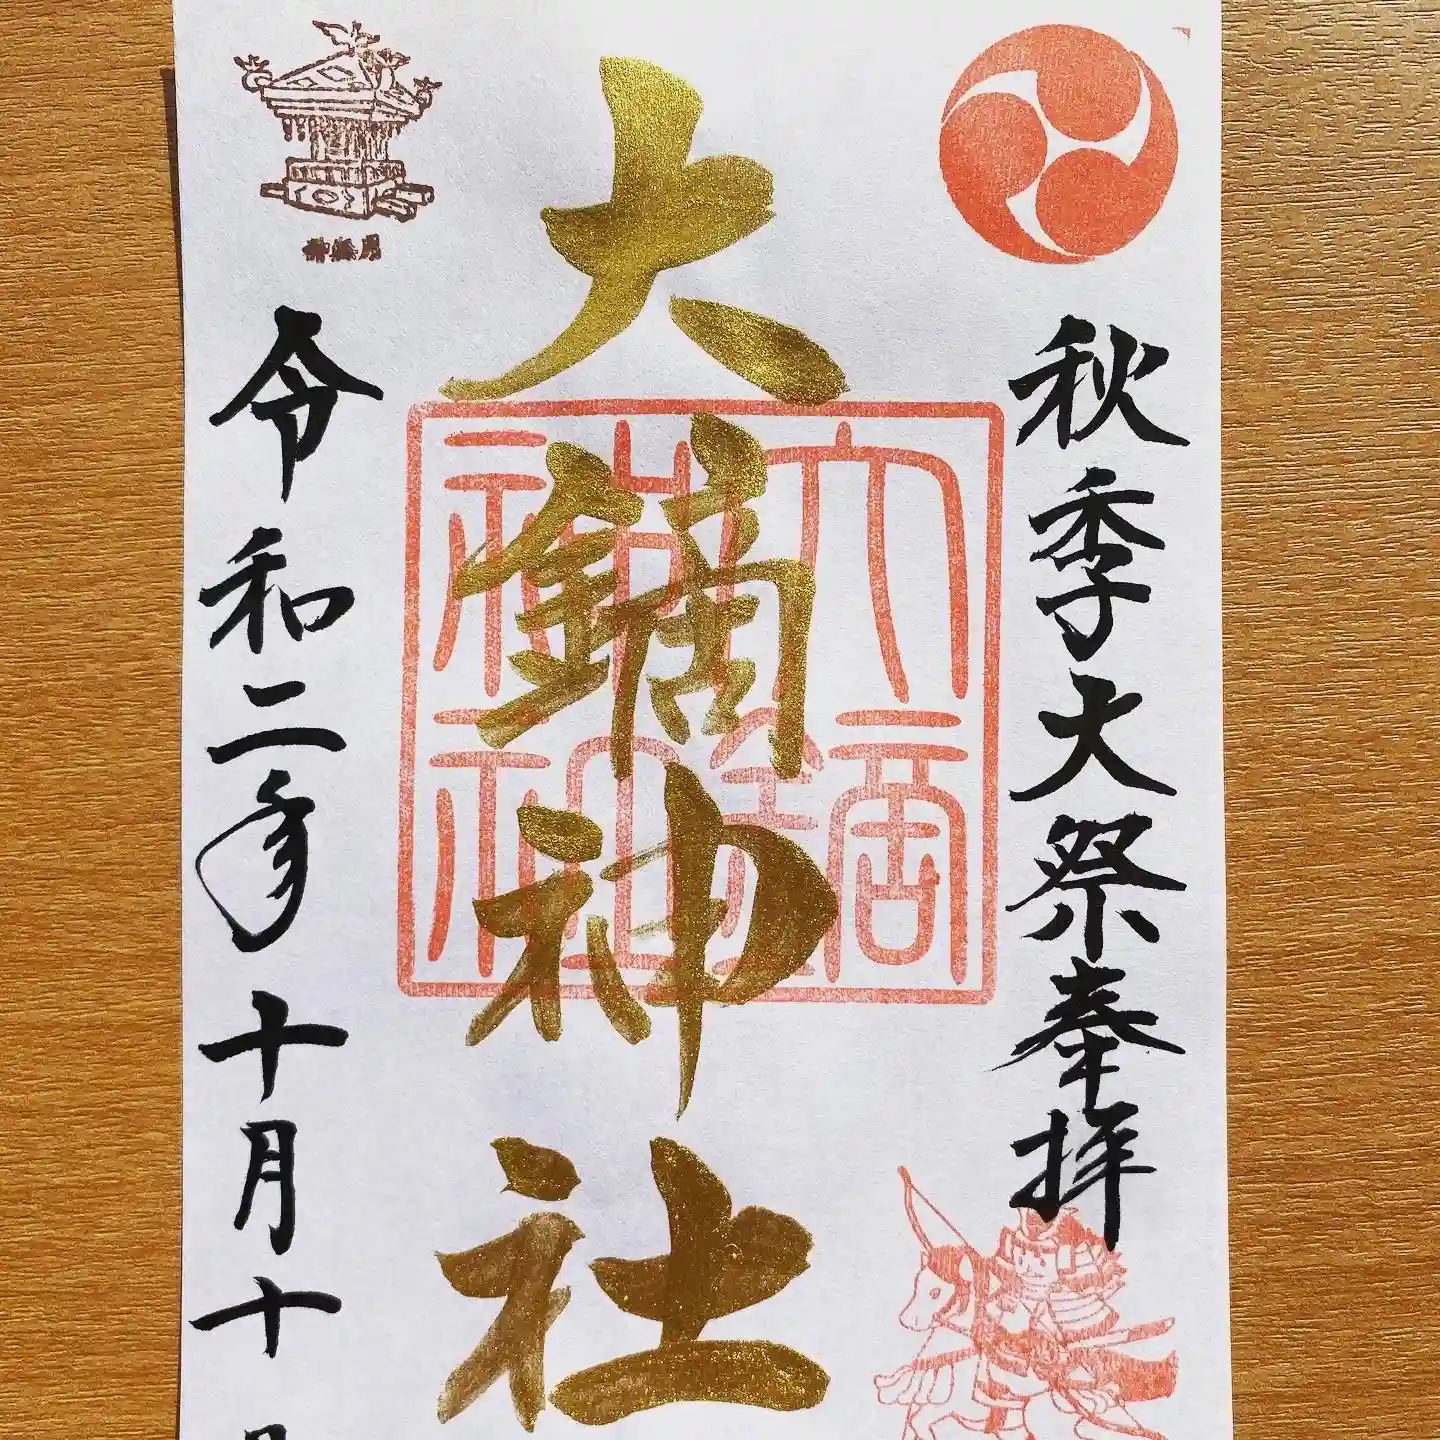 秋季大祭奉拝
大鏑神社
大鏑神社
令和二年十月十日
神無月